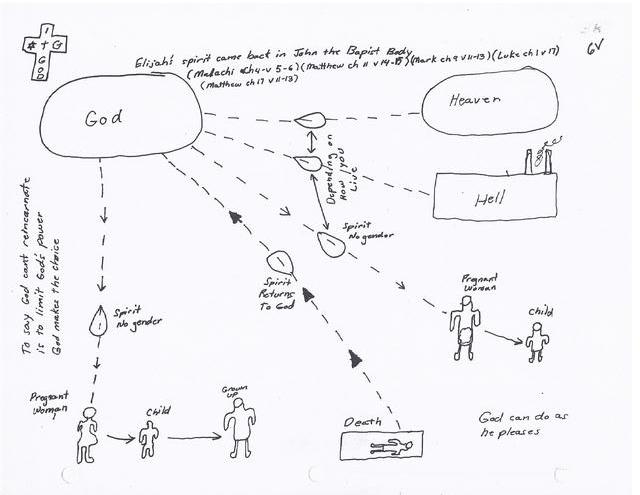 1
# + G
G
O
D
6V
Elijah's spirit came back in John the Bapist Body
(Malachi ch4-v 5-6) (Matthew ch 11 v 14-15) (Mark ch 9 v 11-13) (Luke ch 1 v 17)
(Matthew ch 17 v 11-13)
God
Heaven
Hell
Depending on
How you
Live
Spirit
No gender
Spirit
Returns
To God
To say God cant reincarnate
is to limit God's power
God makes the choice
Spirit
No gender
Pregnant
Woman
Child
Pregnant
Woman
Child
Grown
up
Death
God can do as
he pleases